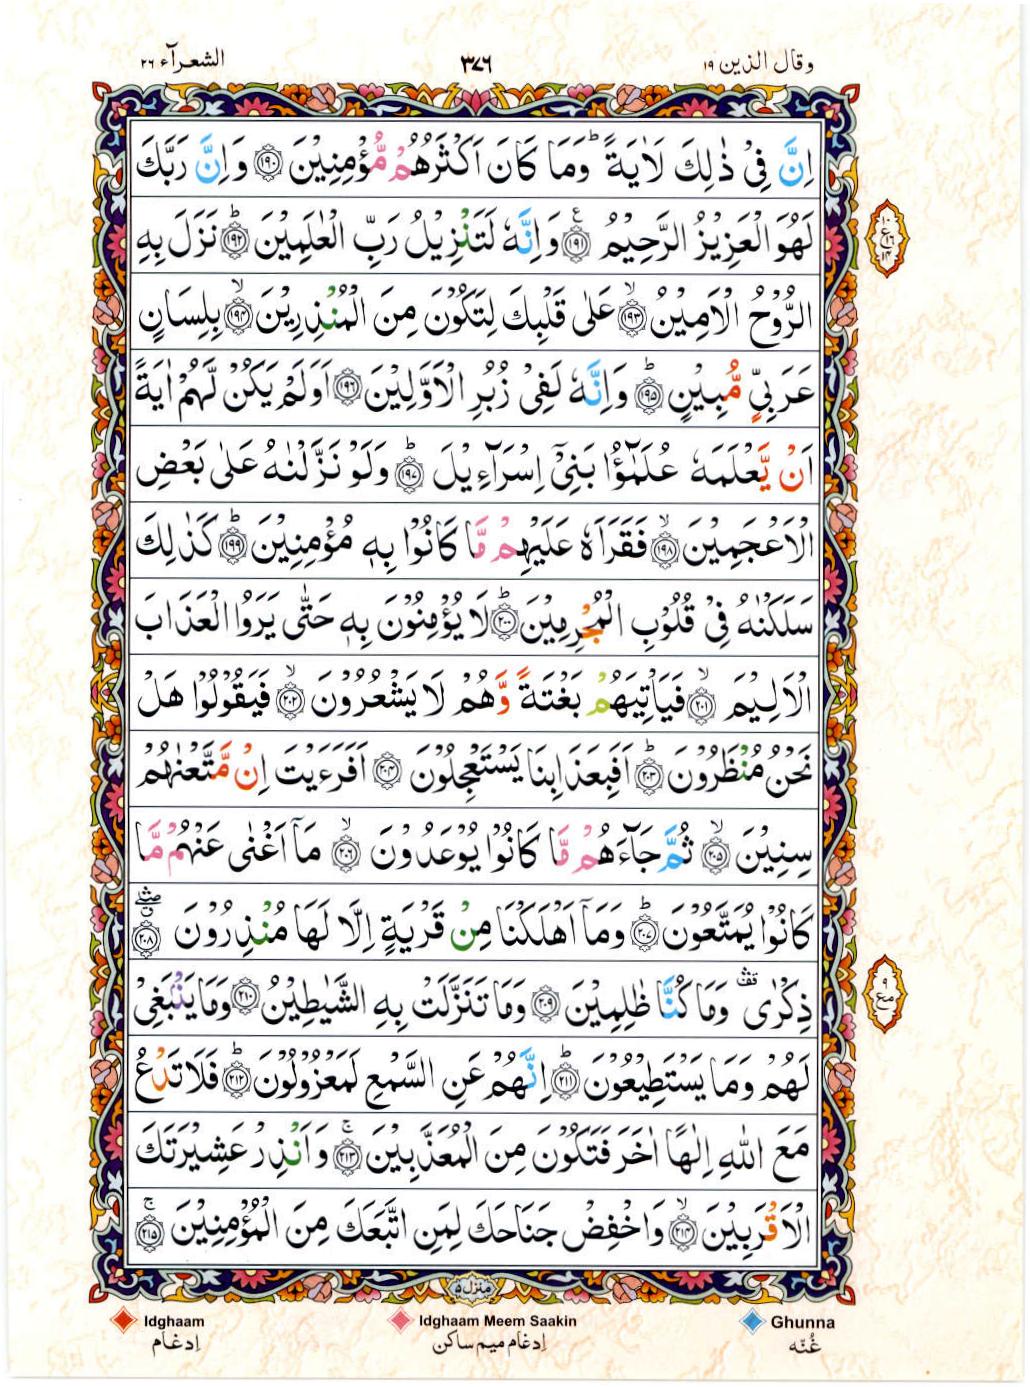 وقال الذين ۱۹
۳۷٦
الشعرآء ۲٦
اِنَّ فِيْ ذٰلِكَ لَاٰيَةً ؕ وَمَا كَانَ اَكْثَرُهُمْ مُّؤْمِنِيْنَ ﴿۱۹۰﴾ وَاِنَّ رَبَّكَ
لَهُوَ الْعَزِيْزُ الرَّحِيْمُ ﴿۱۹۱﴾ وَاِنَّهٗ لَتَنْزِيْلُ رَبِّ الْعٰلَمِيْنَ ﴿۱۹۲﴾ نَزَلَ بِهِ
الرُّوْحُ الْاَمِيْنُ ﴿۱۹۳﴾ عَلٰى قَلْبِكَ لِتَكُوْنَ مِنَ الْمُنْذِرِيْنَ ﴿۱۹۴﴾ بِلِسَانٍ
عَرَبِيٍّ مُّبِيْنٍ ﴿۱۹۵﴾ وَاِنَّهٗ لَفِيْ زُبُرِ الْاَوَّلِيْنَ ﴿۱۹٦﴾ اَوَلَمْ يَكُنْ لَّهُمْ اٰيَةً
اَنْ يَّعْلَمَهٗ عُلَمٰٓؤُا بَنِيْٓ اِسْرَآءِيْلَ ﴿۱۹۷﴾ وَلَوْ نَزَّلْنٰهُ عَلٰى بَعْضِ
الْاَعْجَمِيْنَ ﴿۱۹۸﴾ فَقَرَاَهٗ عَلَيْهِمْ مَّا كَانُوْا بِهٖ مُؤْمِنِيْنَ ﴿۱۹۹﴾ كَذٰلِكَ
سَلَكْنٰهُ فِيْ قُلُوْبِ الْمُجْرِمِيْنَ ﴿۲۰۰﴾ لَا يُؤْمِنُوْنَ بِهٖ حَتّٰى يَرَوُا الْعَذَابَ
الْاَلِيْمَ ﴿۲۰۱﴾ فَيَاْتِيَهُمْ بَغْتَةً وَّهُمْ لَا يَشْعُرُوْنَ ﴿۲۰۲﴾ فَيَقُوْلُوْا هَلْ
نَحْنُ مُنْظَرُوْنَ ﴿۲۰۳﴾ اَفَبِعَذَابِنَا يَسْتَعْجِلُوْنَ ﴿۲۰۴﴾ اَفَرَءَيْتَ اِنْ مَّتَّعْنٰهُمْ
سِنِيْنَ ﴿۲۰۵﴾ ثُمَّ جَآءَهُمْ مَّا كَانُوْا يُوْعَدُوْنَ ﴿۲۰٦﴾ مَآ اَغْنٰى عَنْهُمْ مَّا
كَانُوْا يُمَتَّعُوْنَ ﴿۲۰۷﴾ وَمَآ اَهْلَكْنَا مِنْ قَرْيَةٍ اِلَّا لَهَا مُنْذِرُوْنَ ﴿۲۰۸﴾
ذِكْرٰى وَمَا كُنَّا ظٰلِمِيْنَ ﴿۲۰۹﴾ وَمَا تَنَزَّلَتْ بِهِ الشَّيٰطِيْنُ ﴿۲۱۰﴾ وَمَا يَنْۢبَغِيْ
لَهُمْ وَمَا يَسْتَطِيْعُوْنَ ﴿۲۱۱﴾ اِنَّهُمْ عَنِ السَّمْعِ لَمَعْزُوْلُوْنَ ﴿۲۱۲﴾ فَلَا تَدْعُ
مَعَ اللّٰهِ اِلٰهًا اٰخَرَ فَتَكُوْنَ مِنَ الْمُعَذَّبِيْنَ ﴿۲۱۳﴾ وَاَنْذِرْ عَشِيْرَتَكَ
الْاَقْرَبِيْنَ ﴿۲۱۴﴾ وَاخْفِضْ جَنَاحَكَ لِمَنِ اتَّبَعَكَ مِنَ الْمُؤْمِنِيْنَ ﴿۲۱۵﴾
منزل ۵
Idghaam Idghaam Meem Saakin Ghunna
اِدغام اِدغام ميم ساكن غُنّه